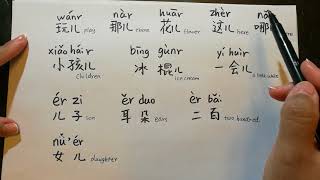 wánr nàr huār zhèr nǎr
玩儿 play 那儿 there 花儿 flower 这儿 here 哪
xiǎo hái r bīng gùnr yí huìr
小孩儿 children 冰棍儿 ice cream 一会儿 a little while
ér zi ěr duo èr bǎi
儿子 son 耳朵 ears 二百 two hundred
nǚ'ér
女儿 daughter